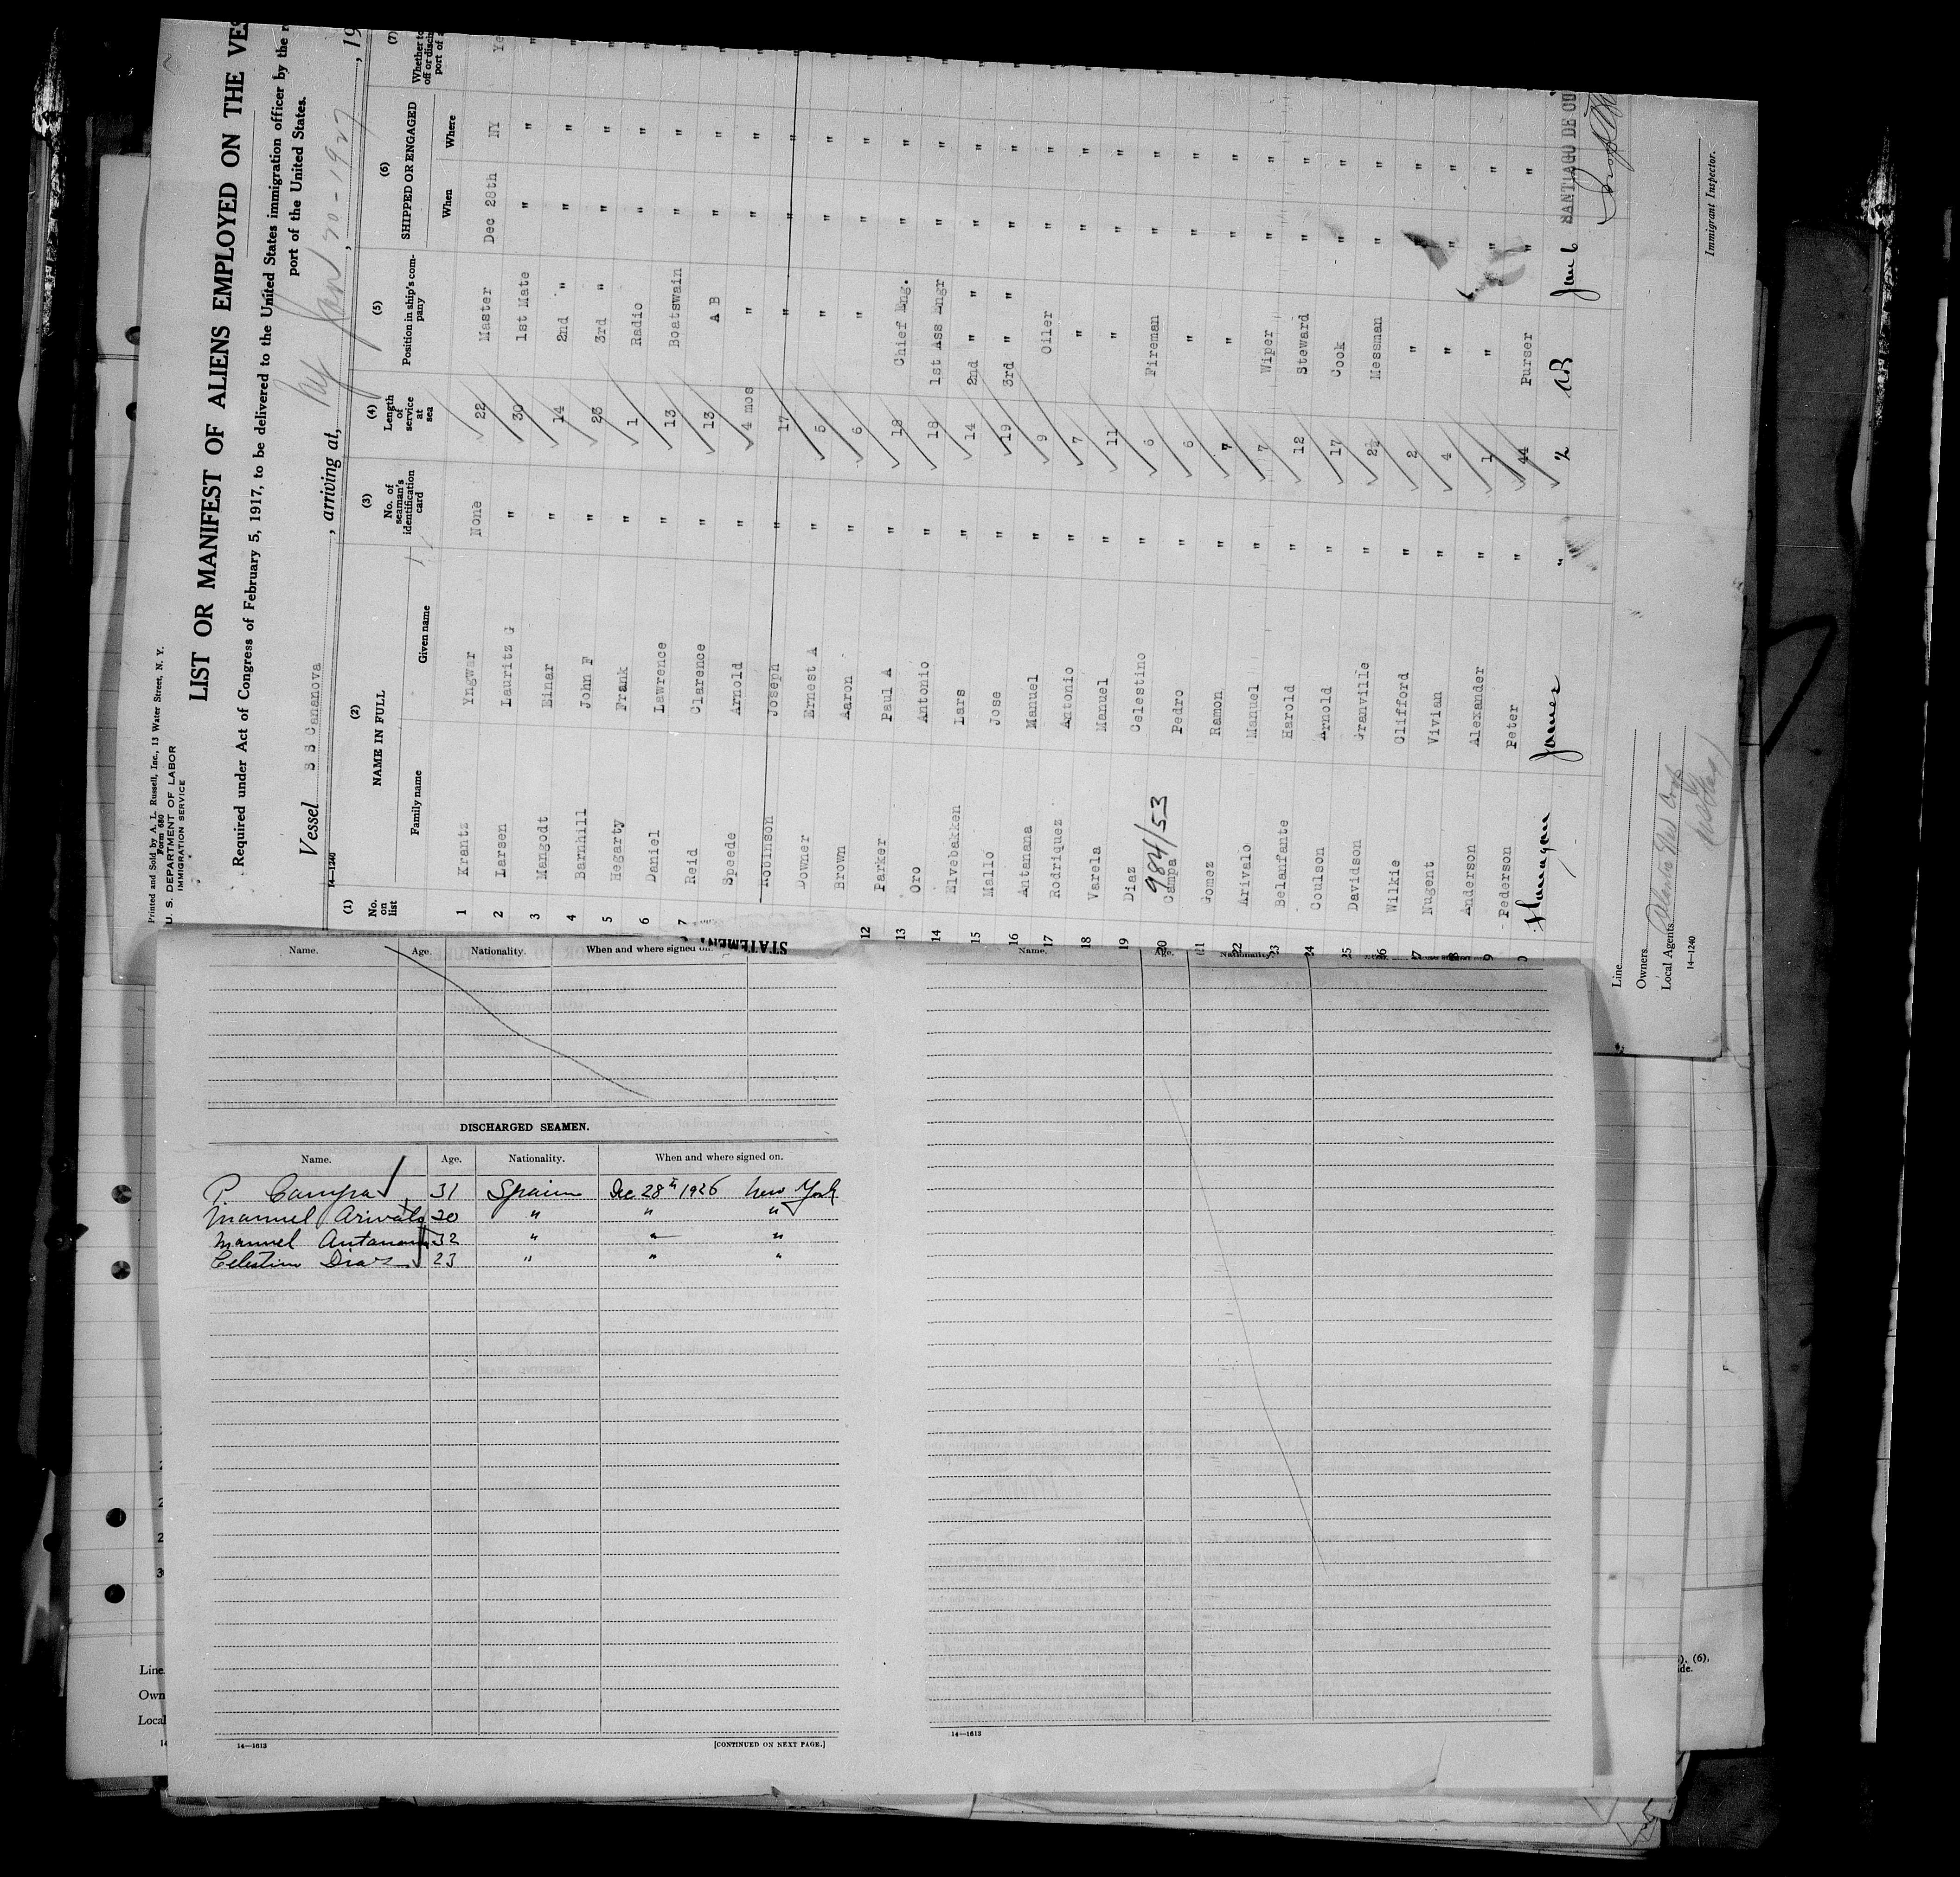 Printed and Sold by A. L. Russell, Inc., 13 Water Street, N. Y.
Form 680
U. S. DEPARTMENT OF LABOR
IMMIGRATION SERVICE
LIST OR MANIFEST OF ALIENS EMPLOYED ON THE VES
Required under Act of Congress of February 5, 1917, to be delivered to the United States immigration officer by the
port of the United States.
Vessel S S Cananova, arriving at, NY Jany 20 - 1927, 19
14—1240
(1) (2) (3) (4) (5) (6) (7)
No. on list NAME IN FULL No. of seaman's identification card Length of service at sea Position in ship's company SHIPPED OR ENGAGED Whether to off or disch port of a
Family name Given name When Where
1 Krantz Yngwar None 22 Master Dec 28th NY Ye
2 Larsen Lauritz G " 30 1st Mate " " "
3 Mangodt Einar " 14 2nd " " " "
4 Barnhill John F " 23 3rd " " " "
5 Hegarty Frank " 1 Radio " " "
6 Daniel Lawrence " 13 Boatswain " " "
7 Reid Clarence " 13 A B " " "
Speede Arnold " 4 mos " " " "
Robinson Joseph " 17 " " " "
Downer Ernest A " 5 " " " "
Brown Aaron " 6 " " " "
12 Parker Paul A " 18 Chief Eng. " " "
13 Oro Antonio " 18 1st Ass Engr " " "
14 Elvebakken Lars " 14 2nd " " " " "
15 Mallo Jose " 19 3rd " " " " "
16 Antanana Manuel " 9 Oiler " " "
17 Rodriquez Antonio " 7 " " " "
18 Varela Manuel " 11 " " " "
19 Diaz Celestino " 6 Fireman " " "
984/53
20 Campa Pedro " 6 " " " "
21 Gomez Ramon " 7 " " " "
22 Arivalo Manuel " 7 Wiper " " "
23 Belanfante Harold " 12 Steward " " "
24 Coulson Arnold " 17 Cook " " "
25 Davidson Granville " 2½ Messman " " "
26 Wilkie Clifford " 2 " " " "
27 Nugent Vivian " 4 " " " "
28 Anderson Alexander " 1 " " " "
9 Pederson Peter " 44 Purser " " "
0 Hannigan James " 2 AB Jan 6 SANTIAGO DE CU
Line
Owners
Local Agents
Immigrant Inspector.
14—1240
STATEMEN
Name. Age. Nationality. When and where signed on.
DISCHARGED SEAMEN.
Name. Age. Nationality. When and where signed on.
P. Campa 31 Spain Dec 28th 1926 New York
Manuel Arivalo 20 " " "
Manuel Antanana 32 " " "
Celestino Diaz 23 " " "
14—1613 [CONTINUED ON NEXT PAGE.]
Name. Age. Nationality.
14—1613
Line
Own
Local
14
), (6),
ide.